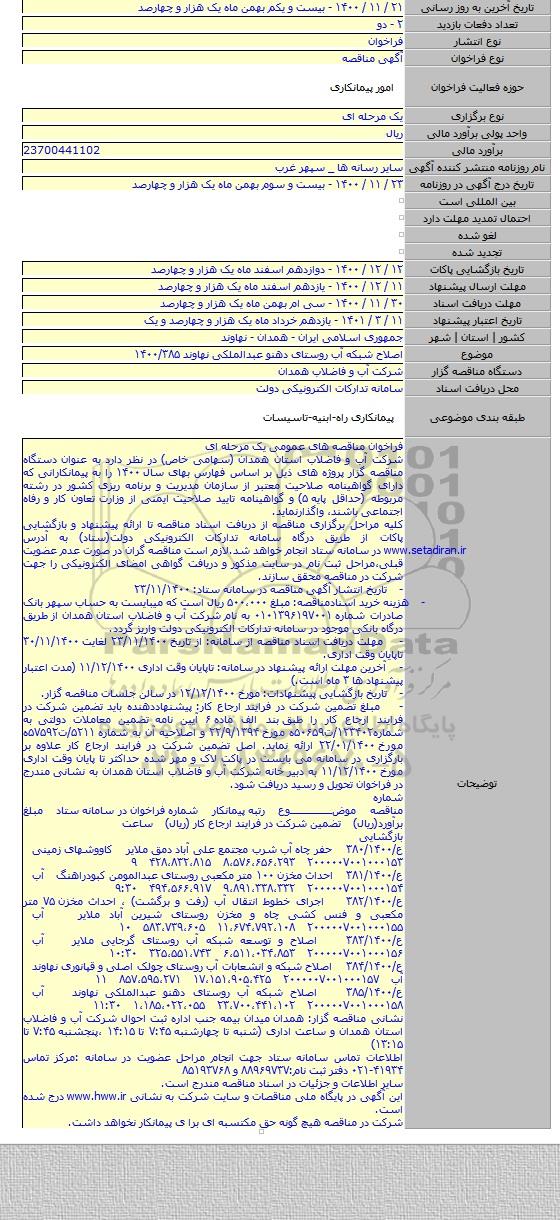 تاریخ آخرین به روز رسانی ۲۱ / ۱۱ / ۱۴۰۰ - بیست و یکم بهمن ماه یک هزار و چهارصد
تعداد دفعات بازدید ۲ - دو
نوع انتشار فراخوان
نوع فراخوان آگهی مناقصه
حوزه فعالیت فراخوان امور پیمانکاری
نوع برگزاری یک مرحله ای
واحد پولی برآورد مالی ریال
برآورد مالی 23700441102
نام روزنامه منتشر کننده آگهی سایر رسانه ها _ سپهر غرب
تاریخ درج آگهی در روزنامه ۲۳ / ۱۱ / ۱۴۰۰ - بیست و سوم بهمن ماه یک هزار و چهارصد
بین المللی است
احتمال تمدید مهلت دارد
لغو شده
تجدید شده
تاریخ بازگشایی پاکات ۱۲ / ۱۲ / ۱۴۰۰ - دوازدهم اسفند ماه یک هزار و چهارصد
مهلت ارسال پیشنهاد ۱۱ / ۱۲ / ۱۴۰۰ - یازدهم اسفند ماه یک هزار و چهارصد
مهلت دریافت اسناد ۳۰ / ۱۱ / ۱۴۰۰ - سی ام بهمن ماه یک هزار و چهارصد
تاریخ اعتبار پیشنهاد ۱۱ / ۳ / ۱۴۰۱ - یازدهم خرداد ماه یک هزار و چهارصد و یک
کشور | استان | شهر جمهوری اسلامی ایران - همدان - نهاوند
موضوع اصلاح شبکه آب روستای دهنو عبدالملکی نهاوند ۱۴۰۰/۳۸۵
دستگاه مناقصه گزار شرکت آب و فاضلاب همدان
محل دریافت اسناد سامانه تدارکات الکترونیکی دولت
طبقه بندی موضوعی پیمانکاری راه-ابنیه-تاسیسات
توضیحات
فراخوان مناقصه های عمومی یک مرحله ای
شرکت آب و فاضلاب استان همدان (سهامی خاص) در نظر دارد به عنوان دستگاه
مناقصه گزار پروژه های ذیل بر اساس فهارس بهای سال ۱۴۰۰ را به پیمانکارانی که
دارای گواهینامه صلاحیت معتبر از سازمان مدیریت و برنامه ریزی کشور در رشته
مربوطه (حداقل پایه ۵) و گواهینامه تایید صلاحیت ایمنی از وزارت تعاون کار و رفاه
اجتماعی باشند، واگذارنماید.
کلیه مراحل برگزاری مناقصه از دریافت اسناد مناقصه تا ارائه پیشنهاد و بازگشایی
پاکات از طریق درگاه سامانه تدارکات الکترونیکی دولت(ستاد) به آدرس
www.setadiran.ir در سامانه ستاد انجام خواهد شد.لازم است مناقصه گران در صورت عدم عضویت
قبلی،مراحل ثبت نام در سایت مذکور و دریافت گواهی امضای الکترونیکی را جهت
شرکت در مناقصه محقق سازند.
- تاریخ انتشار آگهی مناقصه در سامانه ستاد: ۲۳/۱۱/۱۴۰۰
- هزینه خرید اسنادمناقصه: مبلغ ۵۰۰،۰۰۰ ریال است که میبایست به حساب سپهر بانک
صادرات شماره ۰۱۰۱۳۹۶۱۹۷۰۰۱ به نام شرکت آب و فاضلاب استان همدان از طریق
درگاه بانکی موجود در سامانه تدارکات الکترونیکی دولت واریز گردد.
- مهلت دریافت اسناد مناقصه از سامانه: از تاریخ ۲۳/۱۱/۱۴۰۰ لغایت ۳۰/۱۱/۱۴۰۰
تاپایان وقت اداری.
- آخرین مهلت ارائه پیشنهاد در سامانه: تاپایان وقت اداری ۱۱/۱۲/۱۴۰۰ (مدت اعتبار
پیشنهاد ها ۳ ماه است.)
- تاریخ بازگشایی پیشنهادات: مورخ ۱۲/۱۲/۱۴۰۰ در سالن جلسات مناقصه گزار.
- مبلغ تضمین شرکت در فرایند ارجاع کار: پیشنهاددهنده باید تضمین شرکت در
فرایند ارجاع کار را طبق بند الف ماده ۶ آیین نامه تضمین معاملات دولتی به
شماره۱۲۳۴۰۲/ت۵۰۶۵۹ه مورخ ۲۲/۹/۱۳۹۴ و اصلاحیه آن به شماره ۵۲۱۱/ت۵۷۵۹۲ه
مورخ ۲۲/۰۱/۱۴۰۰ ارائه نماید. اصل تضمین شرکت در فرایند ارجاع کار علاوه بر
بارگزاری در سامانه می بایست در پاکت لاک و مهر شده حداکثر تا پایان وقت اداری
مورخ ۱۱/۱۲/۱۴۰۰ به دبیرخانه شرکت آب و فاضلاب استان همدان به نشانی مندرج
در فراخوان تحویل و رسید دریافت شود.
شماره
مناقصه موضـــــوع رتبه پیمانکار شماره فراخوان در سامانه ستاد مبلغ
برآورد(ریال) تضمین شرکت در فرایند ارجاع کار (ریال) ساعت
بازگشایی
ع/۳۸۰/۱۴۰۰ حفر چاه آب شرب مجتمع علی آباد دمق ملایر کاووشهای زمینی
۲۰۰۰۰۰۷۰۰۱۰۰۰۱۵۳ ۸،۵۷۶،۶۵۶،۲۹۳ ۴۲۸،۸۳۲،۸۱۵ ۹
ع/۳۸۱/۱۴۰۰ احداث مخزن ۱۰۰ متر مکعبی روستای عبدالمومن کبودراهنگ آب
۲۰۰۰۰۰۷۰۰۱۰۰۰۱۵۴ ۹،۸۹۱،۳۳۸،۳۳۲ ۴۹۴،۵۶۶،۹۱۷ ۹:۳۰
ع/۳۸۲/۱۴۰۰ اجرای خطوط انتقال آب (رفت و برگشت) ، احداث مخزن ۷۵ متر
مکعبی و فنس کشی چاه و مخزن روستای شیرین آباد ملایر آب
۲۰۰۰۰۰۷۰۰۱۰۰۰۱۵۵ ۱۱،۶۷۴،۷۹۲،۱۰۸ ۵۸۳،۷۳۹،۶۰۵ ۱۰
ع/۳۸۳/۱۴۰۰ اصلاح و توسعه شبکه آب روستای گرجایی ملایر آب
۲۰۰۰۰۰۷۰۰۱۰۰۰۱۵۶ ۶،۵۱۱،۰۳۴،۸۵۳ ۳۲۵،۵۵۱،۷۴۳ ۱۰:۳۰
ع/۳۸۴/۱۴۰۰ اصلاح شبکه و انشعابات آب روستای چولک اصلی و قیانوری نهاوند
آب ۲۰۰۰۰۰۷۰۰۱۰۰۰۱۵۷ ۱۷،۱۵۱،۹۰۵،۴۲۵ ۸۵۷،۵۹۵،۲۷۱ ۱۱
ع/۳۸۵/۱۴۰۰ اصلاح شبکه آب روستای دهنو عبدالملکی نهاوند آب
۲۰۰۰۰۰۷۰۰۱۰۰۰۱۵۸ ۲۳،۷۰۰،۴۴۱،۱۰۲ ۱،۱۸۵،۰۲۲،۰۵۵ ۱۱:۳۰
نشانی مناقصه گزار: همدان میدان بیمه جنب اداره ثبت احوال شرکت آب و فاضلاب
استان همدان و ساعت اداری (شنبه تا چهارشنبه ۷:۴۵ تا ۱۴:۱۵ ،پنجشنبه ۷:۴۵ تا
۱۳:۱۵)
اطلاعات تماس سامانه ستاد جهت انجام مراحل عضویت در سامانه :مرکز تماس
۰۲۱-۴۱۹۳۴ دفتر ثبت نام:۸۸۹۶۹۷۳۷ و ۸۵۱۹۳۷۶۸
سایر اطلاعات و جزئیات در اسناد مناقصه مندرج است.
این آگهی در پایگاه ملی مناقصات و سایت شرکت به نشانی www.hww.ir درج شده
است.
شرکت در مناقصه هیچ گونه حق مکتسبه ای برا ی پیمانکار نخواهد داشت.